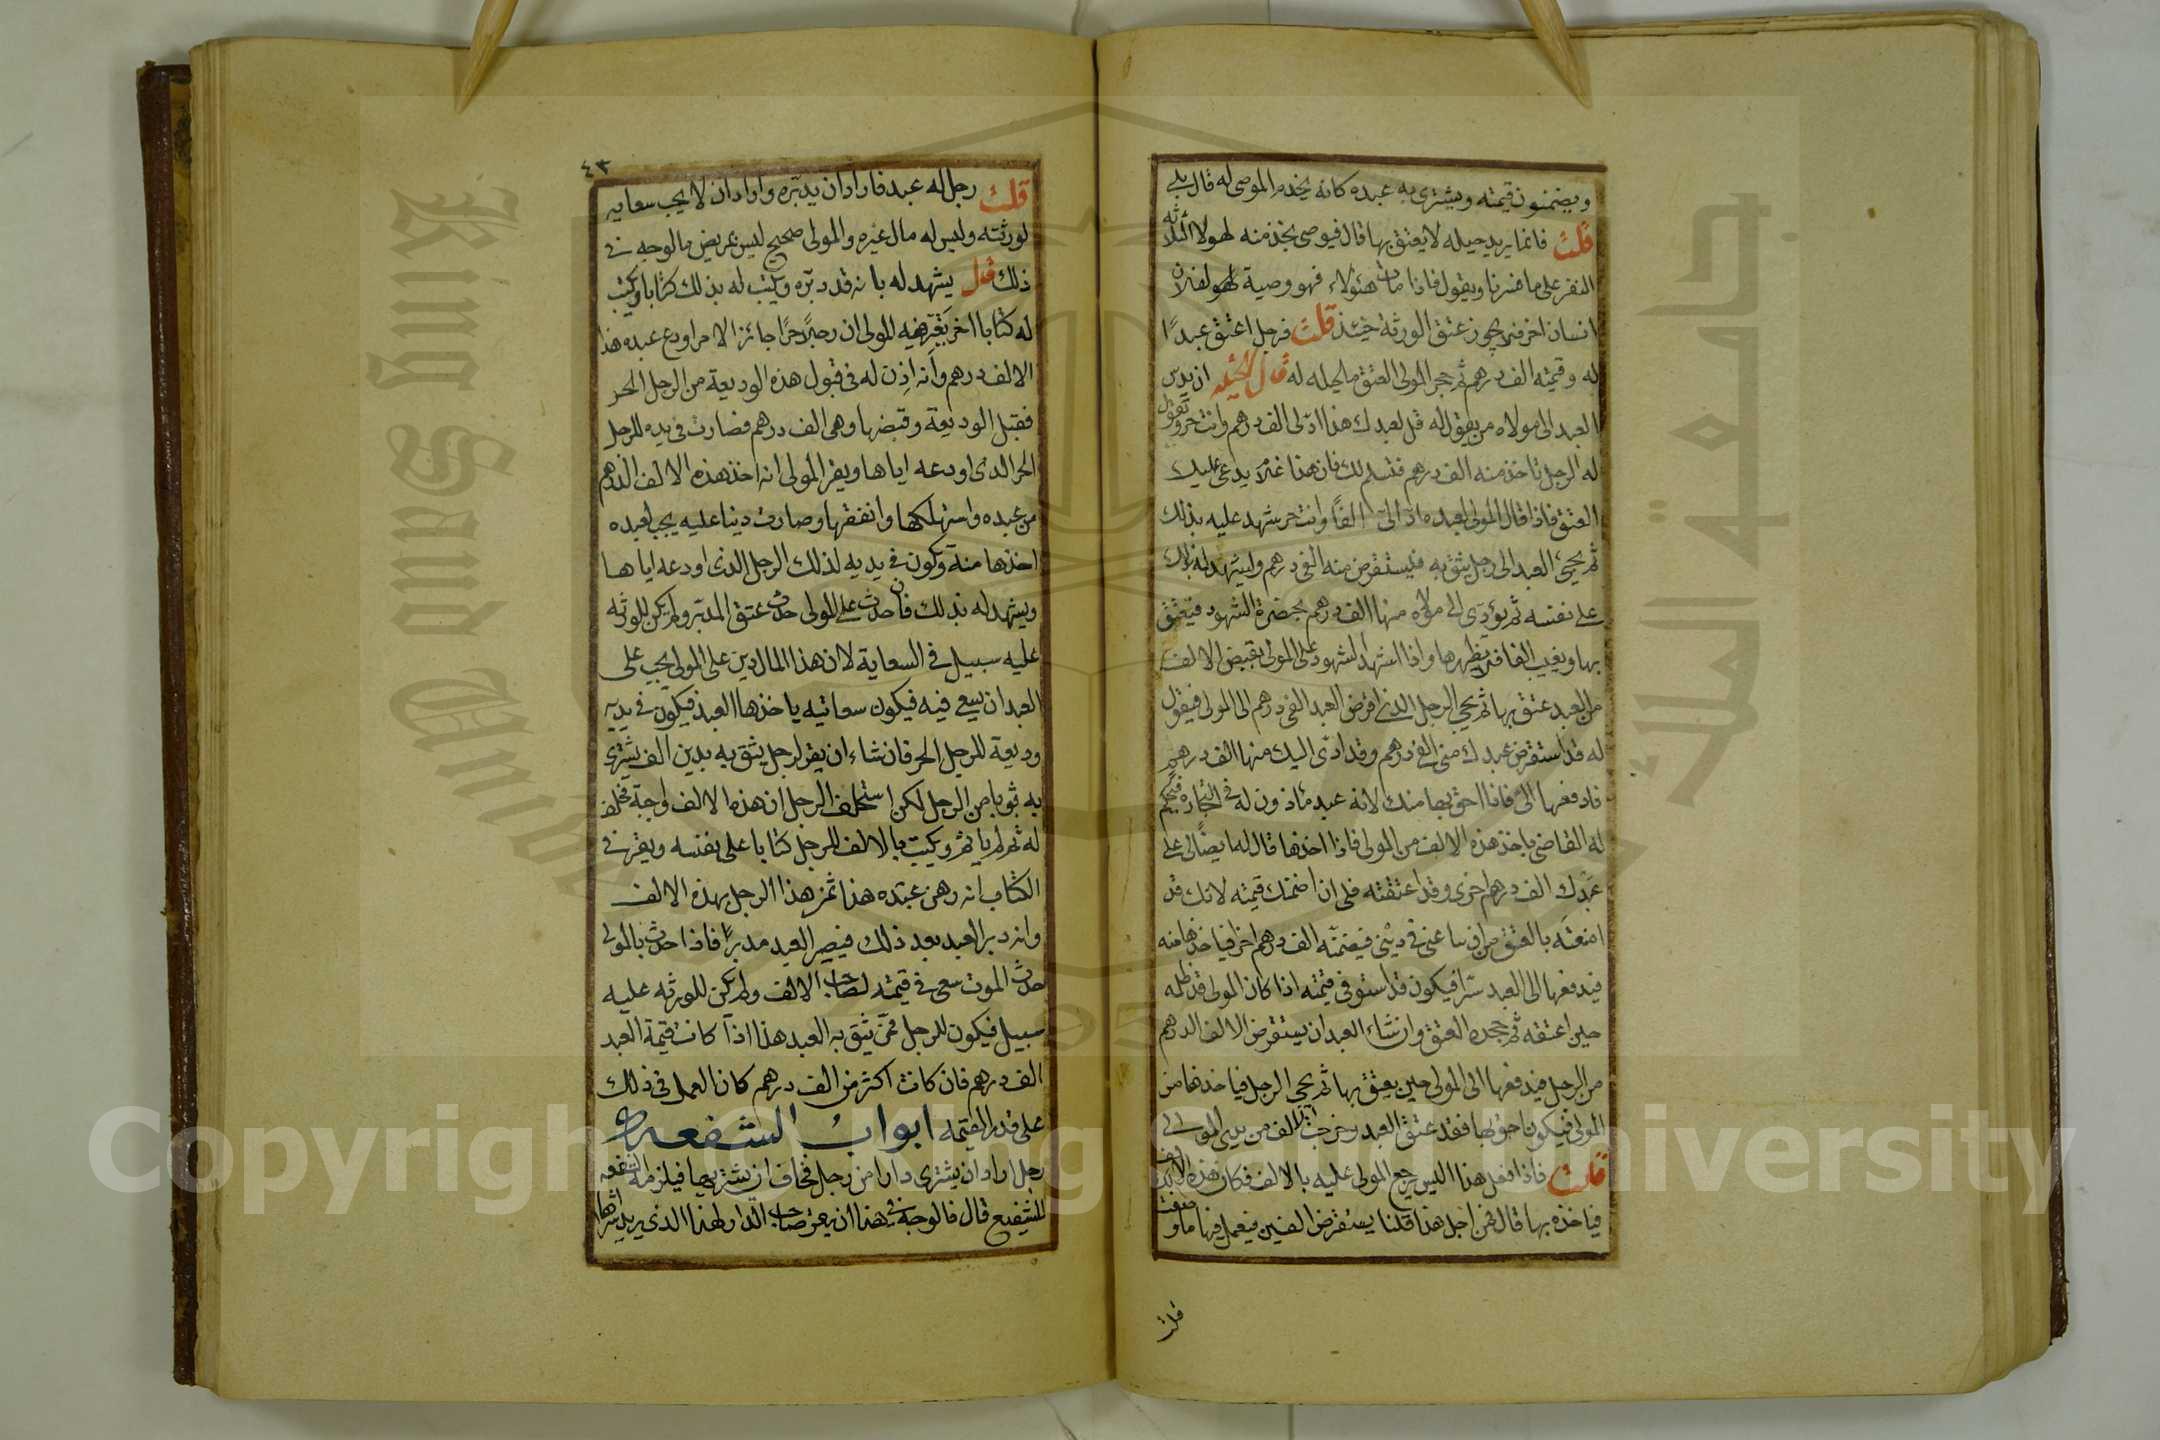 ويضمنون قيمته ويشترى به عبده كانه يخدم الموصى له قال بلى
قلت فانما يريد حيله لا يعتق بها قال فيوصى بخدمته لهولا الثلاثه
النفر على ما فسرنا ويقول فاذا مات هئولاء فهو وصية لفلان
انسان اخر فلا يجوز عتق الورثة حينئذ قلت فرجل اعتق عبدًا
له وقيمته الف درهم ثم جحر المولى العتق ما الحيله له قال الحيله ان يدس
العبد الى مولاه من يقول له قل لعبدك هذا ادّ الى الف درهم وانت حر ويقول
له الرجل تاخذ منه الف درهم فتسلم لك فان هذا غلام يدعى عليك
العتق فاذا قال المولى لعبده ادّ الىّ الفًا وانت حر يشهد عليه بذلك
ثم يجئ العبد الى رجل يثق به فليستقرض منه الفى درهم وليشهد له بذلك
على نفسه ثم يؤدّى الى مولاه منها الف درهم بحضرة الشهود فيعتق
بها ويغيب الفا فلا يظهرها واذا اشهد الشهود على المولى بقبض الالف
من العبد عتق بها ثم يجى الرجل الذى اقرض العبد الفى درهم الى المولى فيقول
له قد استقرض عبدك منى الفى درهم وقد ادّى اليك منها الف درهم
فادفعها الىّ فانا احق بها منك لانه عبد ماذون له فى التجارة فيحكم
له القاضى باخذ هذه الالف من المولى فاذا اخذها قال له ايضًا لى على
عبدك الف درهم اخرى وقد اعتقته فلى ان اضمنك قيمته لانك قد
امنعته بالعتق من ان يباع لى فى دينى فيضمنه الف درهم اخرى فياخذها منه
فيدفعها الى العبد سرّا فيكون قد استوفى قيمته اذا كان المولى قد ظلمه
حين اعتقه ثم جحده العتق وان شاء العبد ان يستقرض الالف الدرهم
من الرجل فيدفعها الى المولى حين يعتق بها ثم يجى الرجل فياخذها من
المولى فيكون احق بها فقد عتق العبد وخرجت الالف من يدى المولى
قلت فاذا فعل هذا اليس يرجع المولى عليه بالالف فكان هذه الالف
فياخذه بها قال فمن اجل هذا قلنا يستقرض الفين فيعمل فيها ما وصفت
قلت
٤٣
قلت رجل له عبد فاراد ان يدبّره واراد ان لا يجب سعايه
لورثته وليس له مال غيره والمولى صحيح ليس بمريض ما الوجه فى
ذلك قال يشهد له بانه قد دبّره ويكتب له بذلك كتابا ويكتب
له كتابا اخر يقرّ فيه المولى ان رجلا حرًا جائز الامر اودع عبده هذا
الالف درهم وانه اذن له فى قبول هذه الوديعة من الرجل الحر
فقبل الوديعة وقبضها وهى الف درهم فصارت فى يده للرجل
الحر الذى اودعه اياها ويقر المولى انه اخذ هذه الالف الدرهم
من عبده واستهلكها وانفقها وصارت دينا عليه يجب لعبده
اخذها منه ويكون فى يديه لذلك الرجل الذى اودعه اياها
ويشهد له بذلك فان حدث على المولى حدث عتق المدبّر ولم يكن للورثه
عليه سبيل فى السعاية لان هذا المال دين على المولى يجب على
العبد ان يسعى فيه فيكون سعايته ياخذها العبد فيكون فى يديه
وديعة للرجل الحر فان شاء ان يقر لرجل يثق به بدين الف يشترى
به ثوبا من الرجل لكن استحلف الرجل ان هذه الالف واجبة فحلف
له ثم لم ياثم ويكتب بالالف للرجل كتابا على نفسه ويقر فى
الكتاب انه رهن عبده هذا من هذا الرجل بهذه الالف
وانه دبر العبد بعد ذلك فيصير العبد مدبرًا فاذا حدث بالمولى
حدث الموت سعى فى قيمته لصاحب الالف ولم يكن للورثه عليه
سبيل فيكون للرجل ممن يثق به العبد هذا اذا كانت قيمة العبد
الف درهم فان كانت اكثر من الف درهم كان العمل فى ذلك
على قدر القيمه ابواب الشفعه
رجل اراد ان يشترى دارا من رجل فخاف ان يشتريها فيلزمه الشفعه
للشفيع قال فالوجه فى هذا ان يقر صاحب الدار لهذا الذى يريد شراها